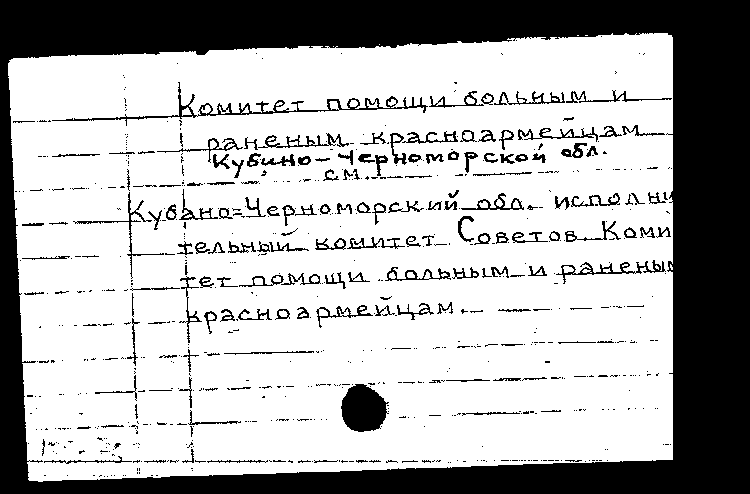 Комитет помощи больным и
раненым красноармейцам
Кубино-Черноморской обл.
см.
Кубано=Черноморский обл. исполни
тельный комитет Советов. Коми
тет помощи больным и раненым
красноармейцам.